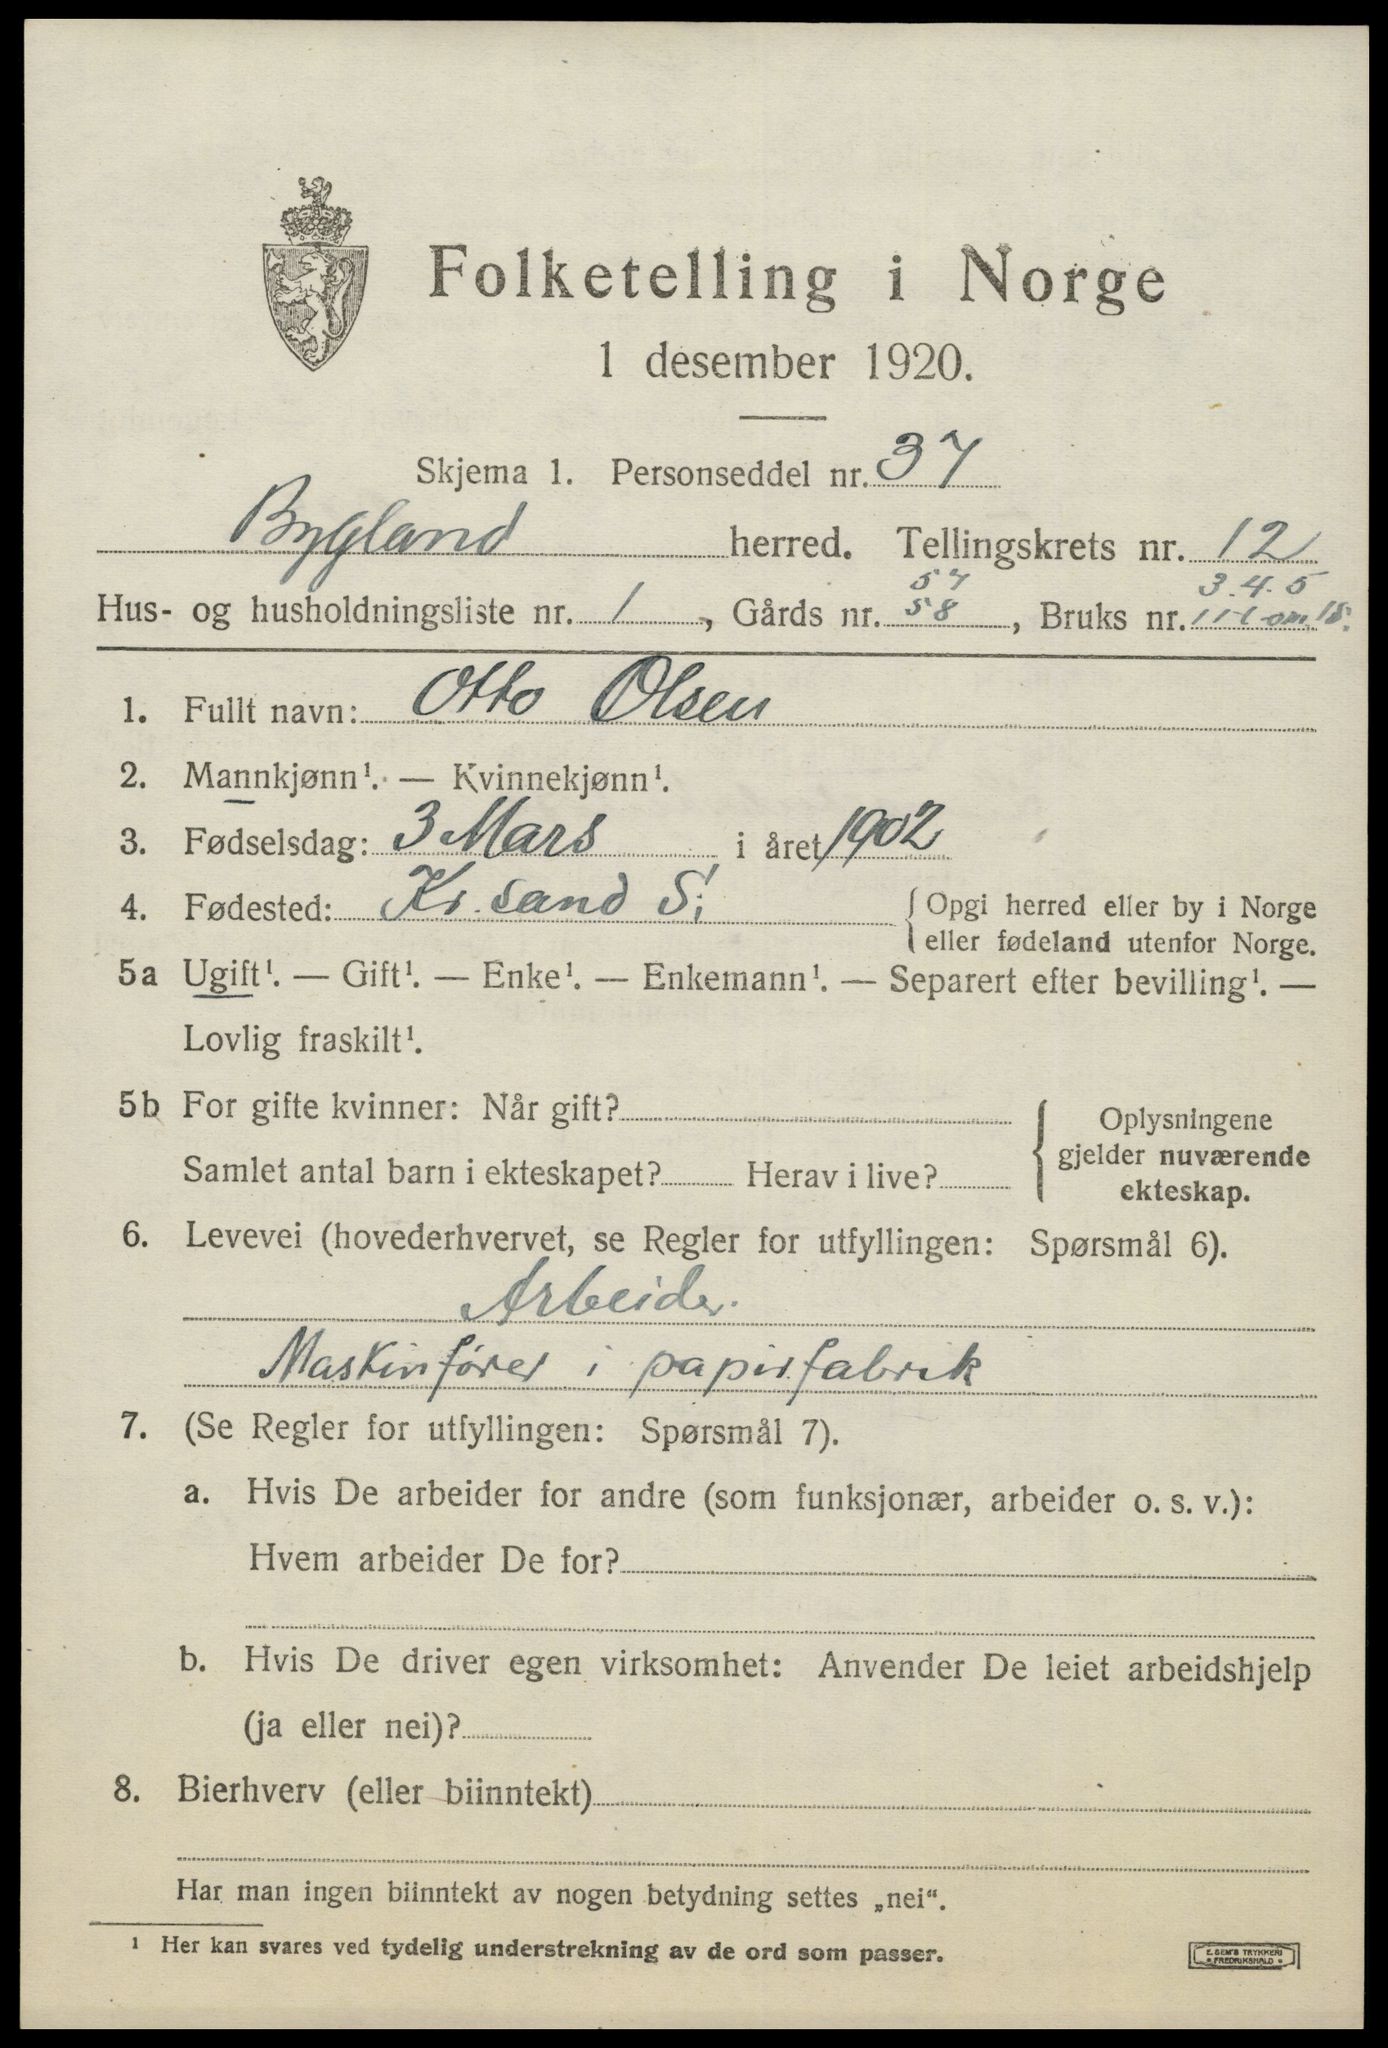 Folketelling i Norge
1 desember 1920.
Skjema 1. Personseddel nr. 37
Bygland herred. Tellingskrets nr. 12
57 3.4.5
Hus- og husholdningsliste nr. 1, Gårds nr. 58, Bruks nr. 1 t-om 18.
1. Fullt navn: Otto Olsen
2. Mannkjønn¹. — Kvinnekjønn¹.
3. Fødselsdag: 3 Mars i året 1902
4. Fødested: Kr.sand S. { Opgi herred eller by i Norge
eller fødeland utenfor Norge.
5a Ugift¹. — Gift¹. — Enke¹. — Enkemann¹. — Separert efter bevilling¹. —
Lovlig fraskilt¹.
5b For gifte kvinner: Når gift?
Samlet antal barn i ekteskapet? Herav i live?
{ Oplysningene
gjelder nuværende
ekteskap.
6. Levevei (hovederhvervet, se Regler for utfyllingen: Spørsmål 6).
Arbeider.
Maskinfører i papirfabrik
7. (Se Regler for utfyllingen: Spørsmål 7).
a. Hvis De arbeider for andre (som funksjonær, arbeider o. s. v.):
Hvem arbeider De for?
b. Hvis De driver egen virksomhet: Anvender De leiet arbeidshjelp
(ja eller nei)?
8. Bierhverv (eller biinntekt)
Har man ingen biinntekt av nogen betydning settes „nei“.
¹ Her kan svares ved tydelig understrekning av de ord som passer.
E. SEM'S TRYKKERI
FREDRIKSHALD